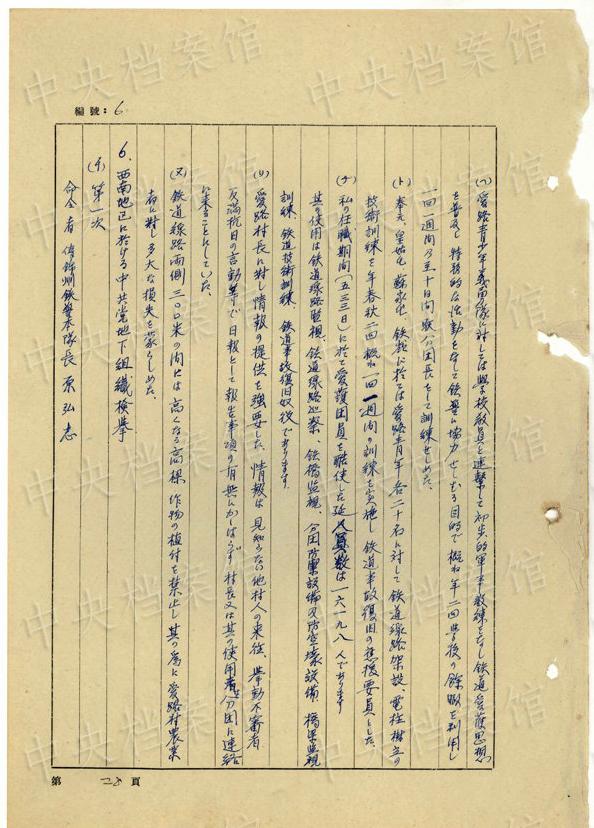 編號：6
(ヘ) 愛路青少年義勇隊に対しては学校教員と連繋して初歩的軍事教練をなし鉄道愛護思想
を普及し特務的な活動をなして鉄警に協力せしむる目的で概ね年二回学校の餘暇を利用し
一回一週間乃至十日間 分団長をして訓練せしめた、
(ト) 奉天、皇姑屯、蘇家屯、鉄嶺に於ては愛路青年各二十名に対して鉄道線路架設、電柱樹立の
技術訓練を年春秋二回概ね一回一週間の訓練を実施し鉄道事故復旧の応援要員とした、
(チ) 私の任職期間（五三三日）に於て愛護団員を駆使した延人員数は一六一九八人であります
其の使用は鉄道線路監視、鉄道線路巡察、鉄橋監視、分団防禦設備及防空壕設備、橋梁監視
訓練、鉄道技術訓練、鉄道事故復旧奴役であります、
(リ) 愛路村長に対し情報の提供を強要した、情報は見知らない他村人の来往、挙動不審者
反満抗日の言動等で日報として報告事項の有無にかかはらず村長又は其の使用者が分団に連絡
に来ることにしていた、
(ヌ) 鉄道線路両側三〇〇米の間には高くなる高粱作物の植付を禁止し其の為に愛路村農業
者に対し多大な損失を蒙らしめた、
6、西南地区に於ける中共党地下組織検挙
(イ) 第一次
命令者 錦州鉄警本隊長 原弘志
第 28 頁
中央档案馆